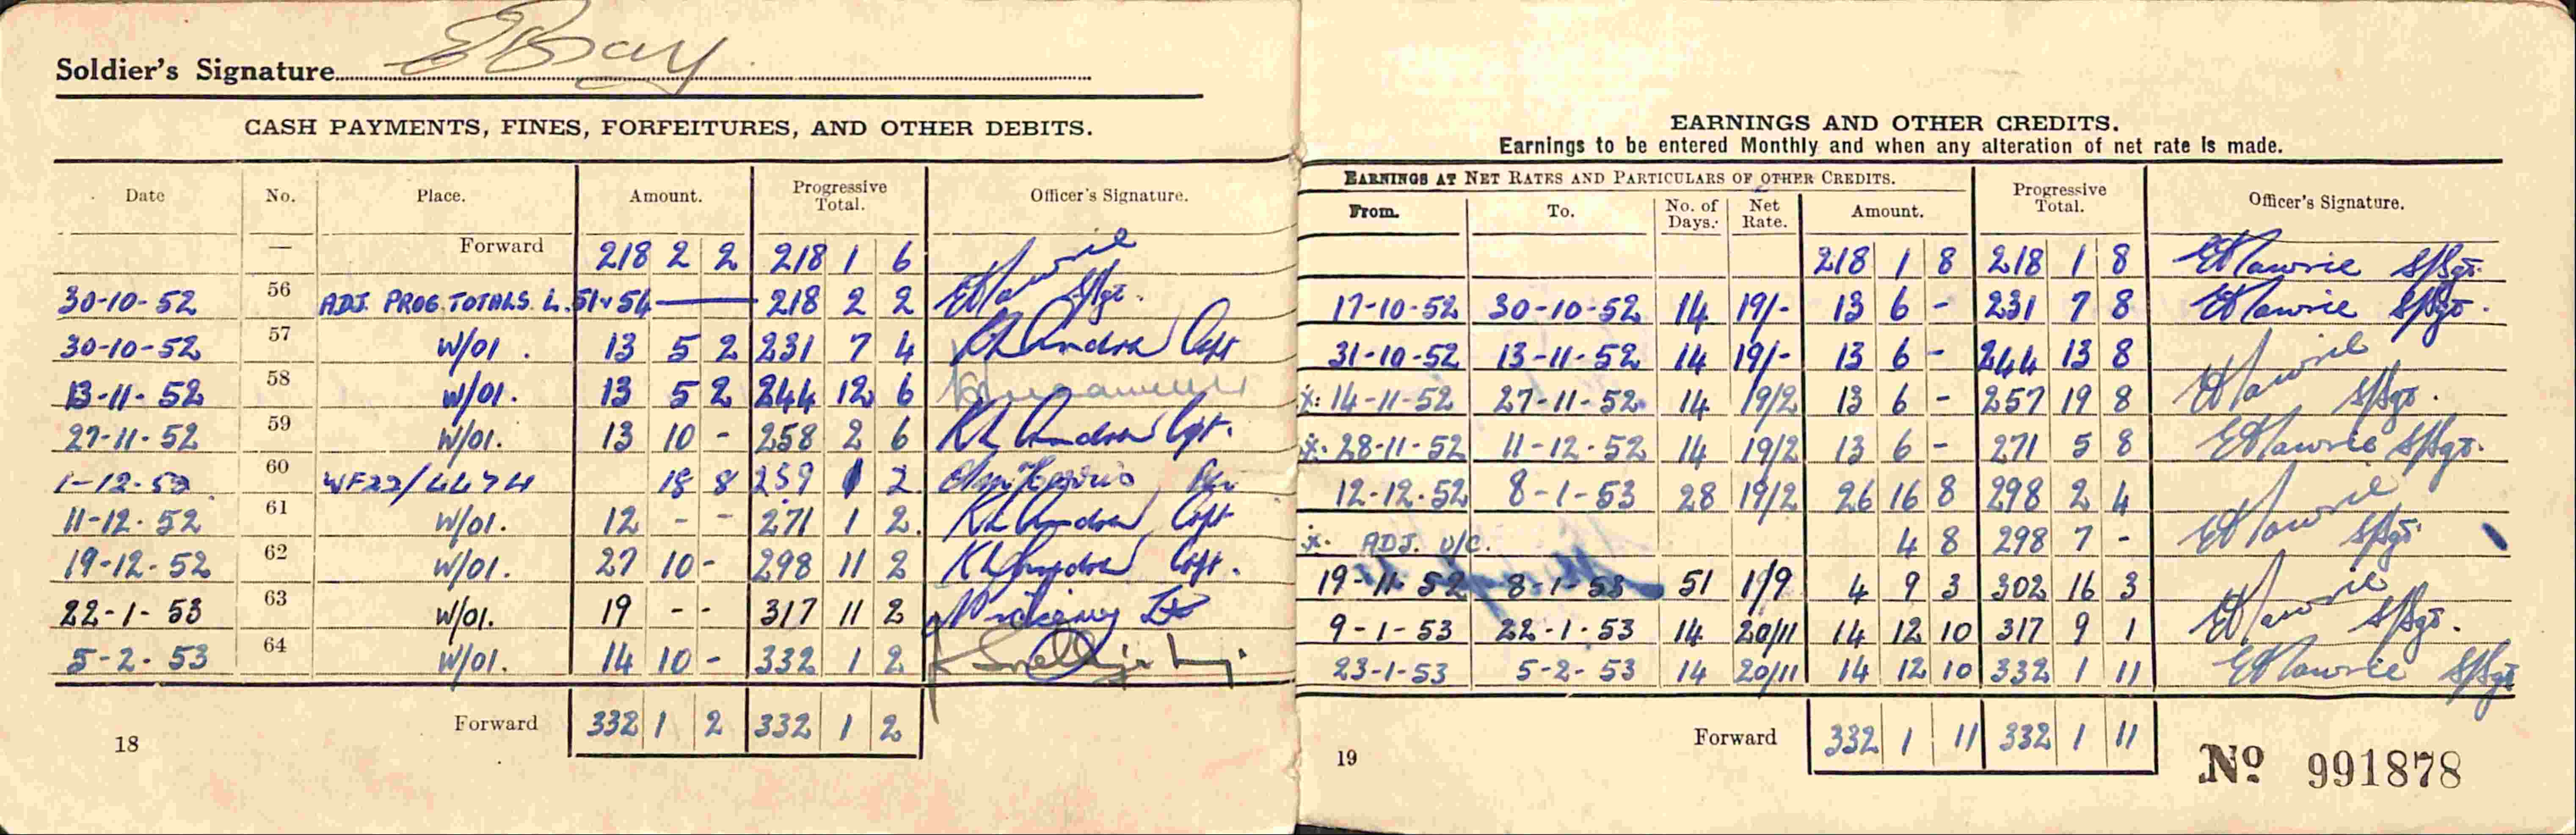 Soldier's Signature E Bay
CASH PAYMENTS, FINES, FORFEITURES, AND OTHER DEBITS.
Date No. Place. Amount. Progressive Total. Officer's Signature.
— Forward 218 2 2 218 1 6
30-10-52 56 ADJ. PROG. TOTALS. L. 51 54 — 218 2 2 S/Sgt.
30-10-52 57 W/01. 13 5 2 231 7 4 Capt
13-11-52 58 W/01. 13 5 2 244 12 6
27-11-52 59 W/01. 13 10 - 258 2 6 Capt.
1-12-52 60 WF22/4474 18 8 259 1 2
11-12-52 61 W/01. 12 - - 271 1 2. Capt
19-12-52 62 W/01. 27 10 - 298 11 2 Capt.
22-1-53 63 W/01. 19 - - 317 11 2 Lt
5-2-53 64 W/01. 14 10 - 332 1 2
Forward 332 1 2 332 1 2
18
EARNINGS AND OTHER CREDITS.
Earnings to be entered Monthly and when any alteration of net rate is made.
EARNINGS AT NET RATES AND PARTICULARS OF OTHER CREDITS.
From. To. No. of Days. Net Rate. Amount. Progressive Total. Officer's Signature.
218 1 8 218 1 8 EHawrie S/Sgt.
17-10-52 30-10-52 14 19/- 13 6 - 231 7 8 EHawrie S/Sgt.
31-10-52 13-11-52 14 19/- 13 6 - 244 13 8 EHawrie
x: 14-11-52 27-11-52 14 19/2 13 6 - 257 19 8 S/Sgt.
x. 28-11-52 11-12-52 14 19/2 13 6 - 271 5 8 EHawrie S/Sgt.
12-12-52 8-1-53 28 19/2 26 16 8 298 2 4 EHawrie
x. ADJ. U/C. 4 8 298 7 - S/Sgt.
19-11-52 8-1-53 51 1/9 4 9 3 302 16 3 EHawrie
9-1-53 22-1-53 14 20/11 14 12 10 317 9 1 S/Sgt.
23-1-53 5-2-53 14 20/11 14 12 10 332 1 11 EHawrie S/Sgt
Forward 332 1 11 332 1 11
19
No 991878